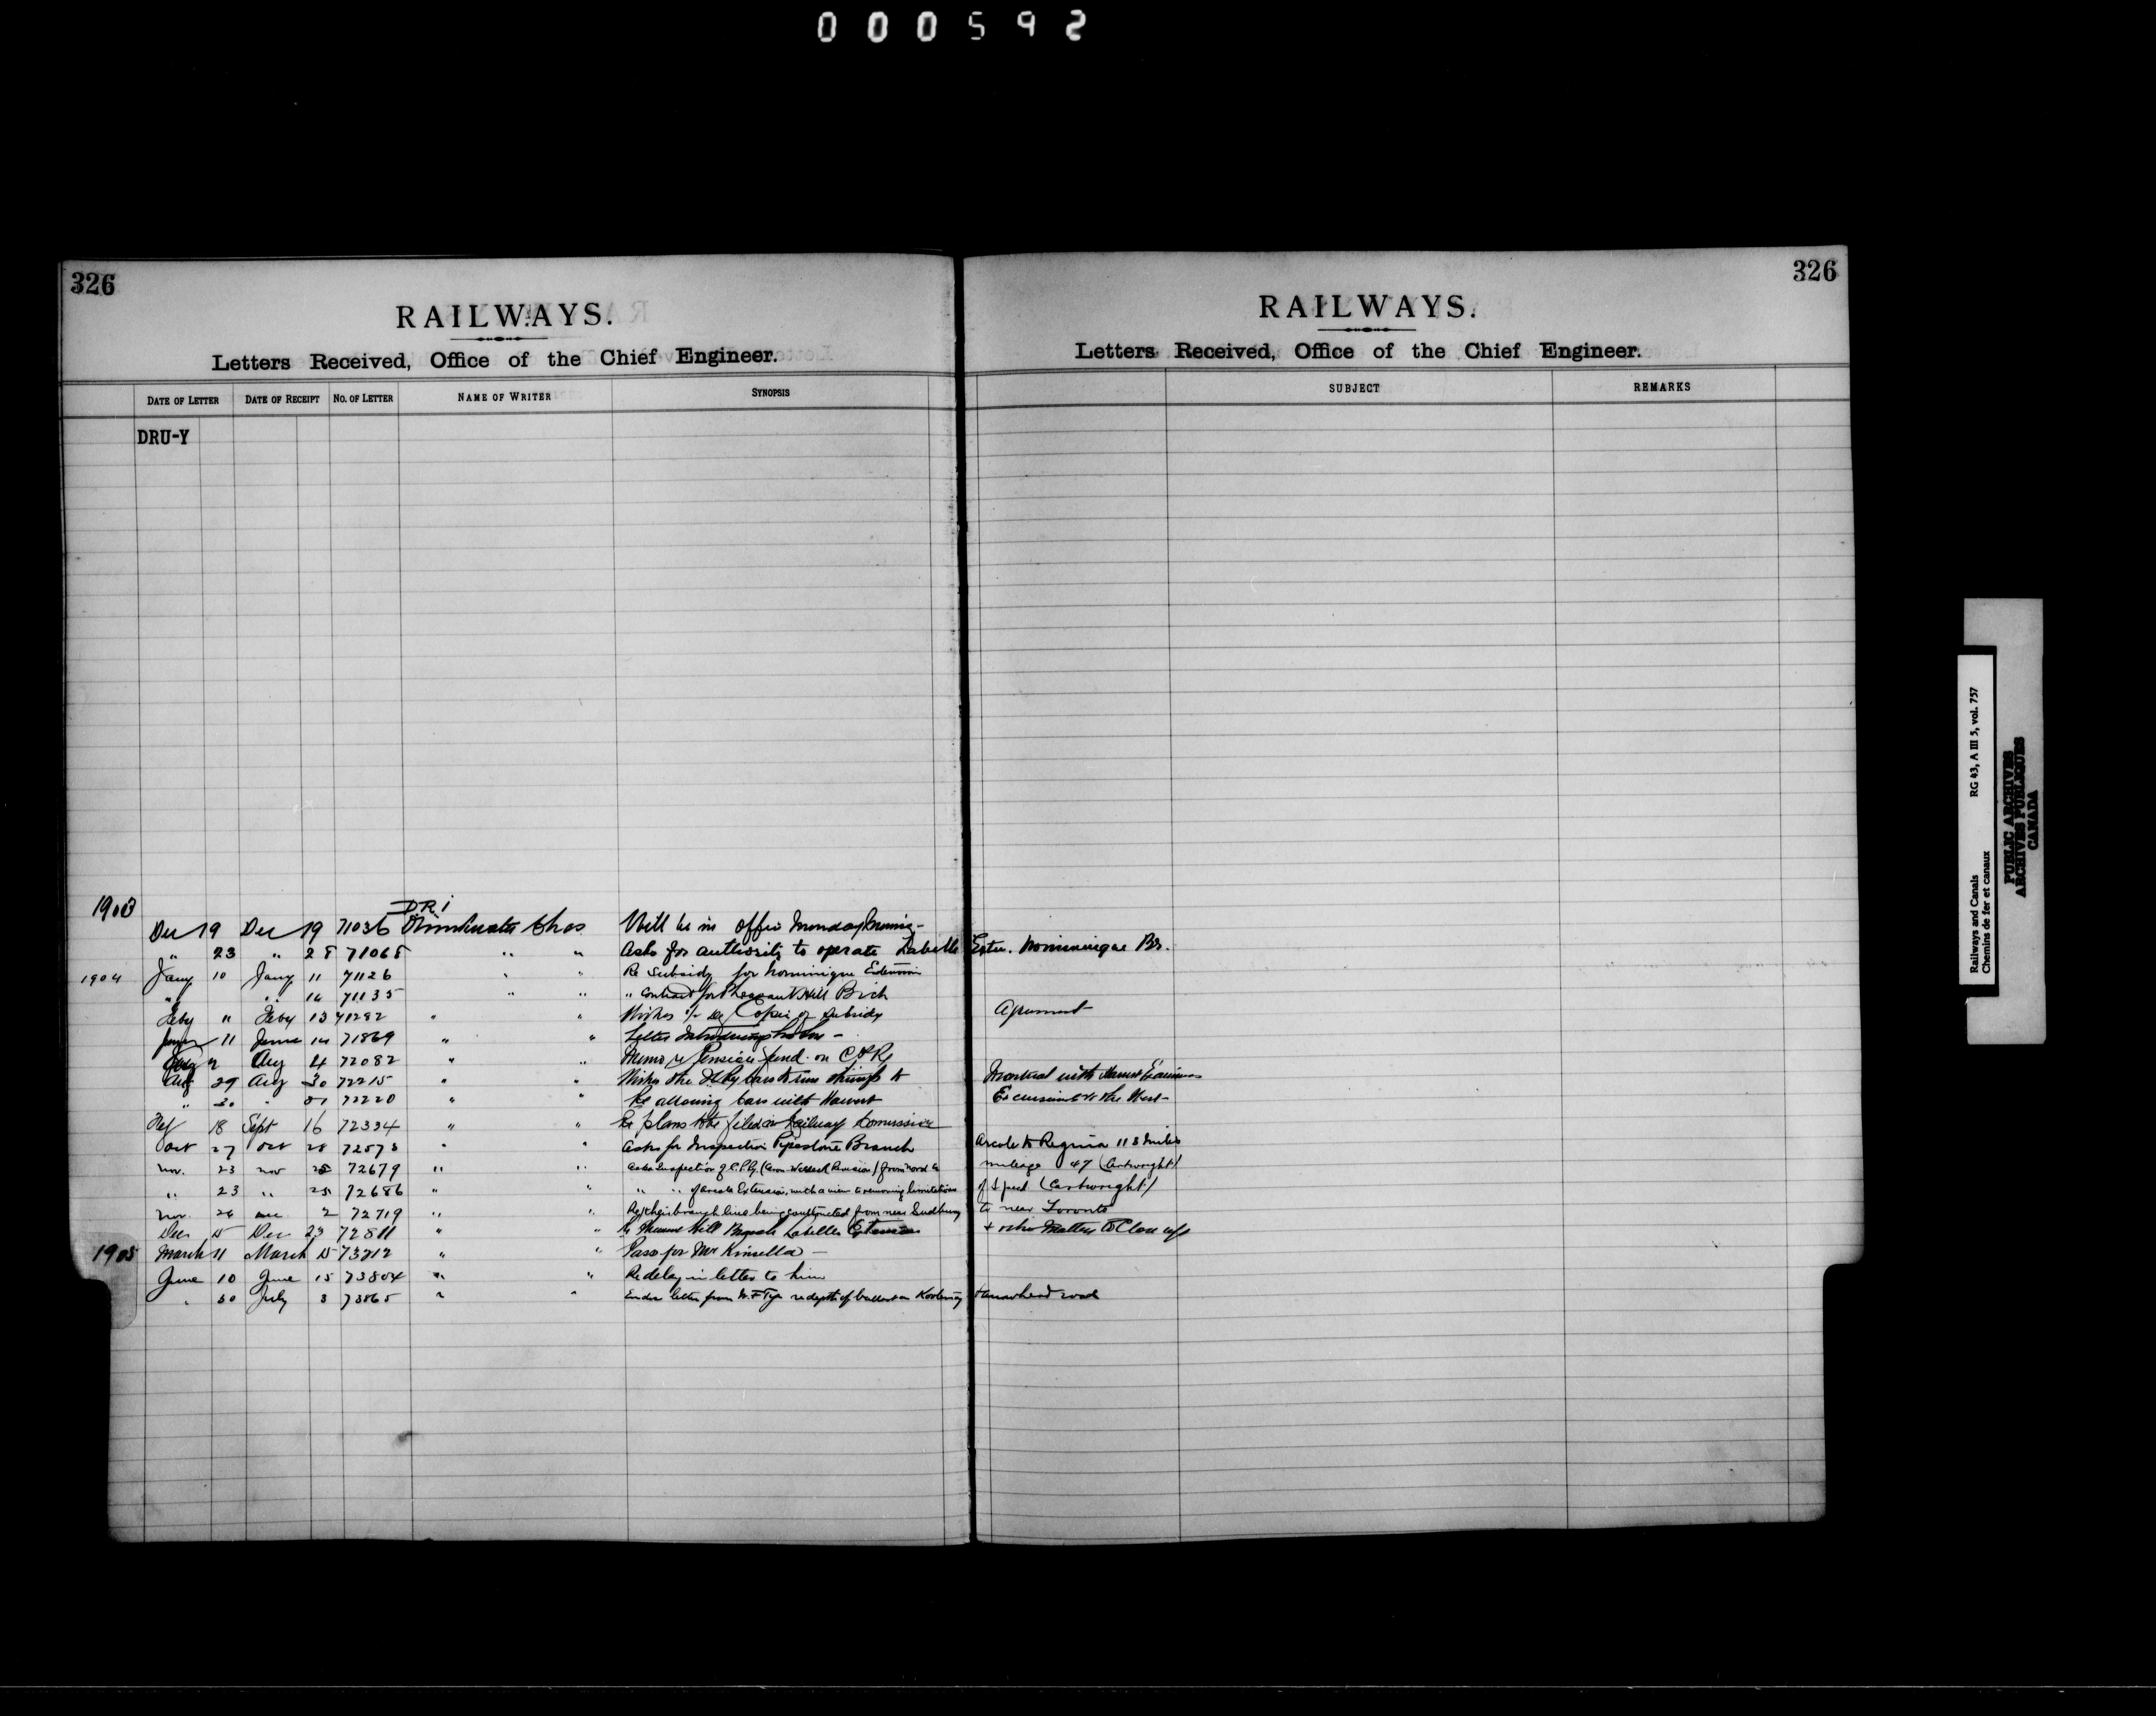 000592
326
RAILWAYS.
Letters Received, Office of the Chief Engineer.
DATE OF LETTER DATE OF RECEIPT NO. OF LETTER NAME OF WRITER SYNOPSIS
DRU-Y
326
RAILWAYS.
Letters Received, Office of the Chief Engineer.
SUBJECT REMARKS
1903
DRi
Dec 19 Dec 19 71036 Drinkwater Chas Will be in office Monday
" 23 " 28 71068 " " Asks for authority to operate Labelle Exten. Nominingue Br.
1904 Jany 10 Jany 11 71126 " " Re Subsidy for Nominingue Extension
" " 14 71135 " " " Contract for Pheasant Hill Bich
Feby " Feby 13 71282 " " Wishes Copies of Subsidy Agreement
June 11 June 14 71869 " " Letter Introducing
Aug 2 Aug 4 72082 " " Memo re Pension fund on C P Ry
Aug 29 Aug 30 72215 " " Wishes the cars to run through to Montreal with Harvest
" 30 " 31 72220 " " Re allowing cars with Harvest Excursions to the West
18 Sept 16 72334 " " Re plans to be filed in Railway Commission
Oct 27 Oct 28 72573 " " Asks for Inspection Pipestone Branch Arcola to Regina 113 miles
Nov. 23 Nov 25 72679 " " Asks Inspection of C.P.Ry. from mileage 47 (Cartwright)
" 23 " 25 72686 " " " " of Arcola Extension, with a view to removing limitations of Speed (Cartwright)
Nov. 26 Dec 2 72719 " " Re their branch line being constructed from near Sudbury to near Toronto
Dec 15 Dec 23 72811 " " Re Pheasant Hill Branch Labelle Extension & other Matters to Close up
1905 March 11 March 15 73212 " " Pass for Mr Kinsella
June 10 June 15 73804 " " Re delay in letter to him
" 30 July 3 73865 " " Encl letter from W. F Tye re depth of ballast on Kootenay & Arrowhead road
Railways and Canals RG 43, A III 5, vol. 757
Chemins de fer et canaux
PUBLIC ARCHIVES
ARCHIVES PUBLIQUES
CANADA